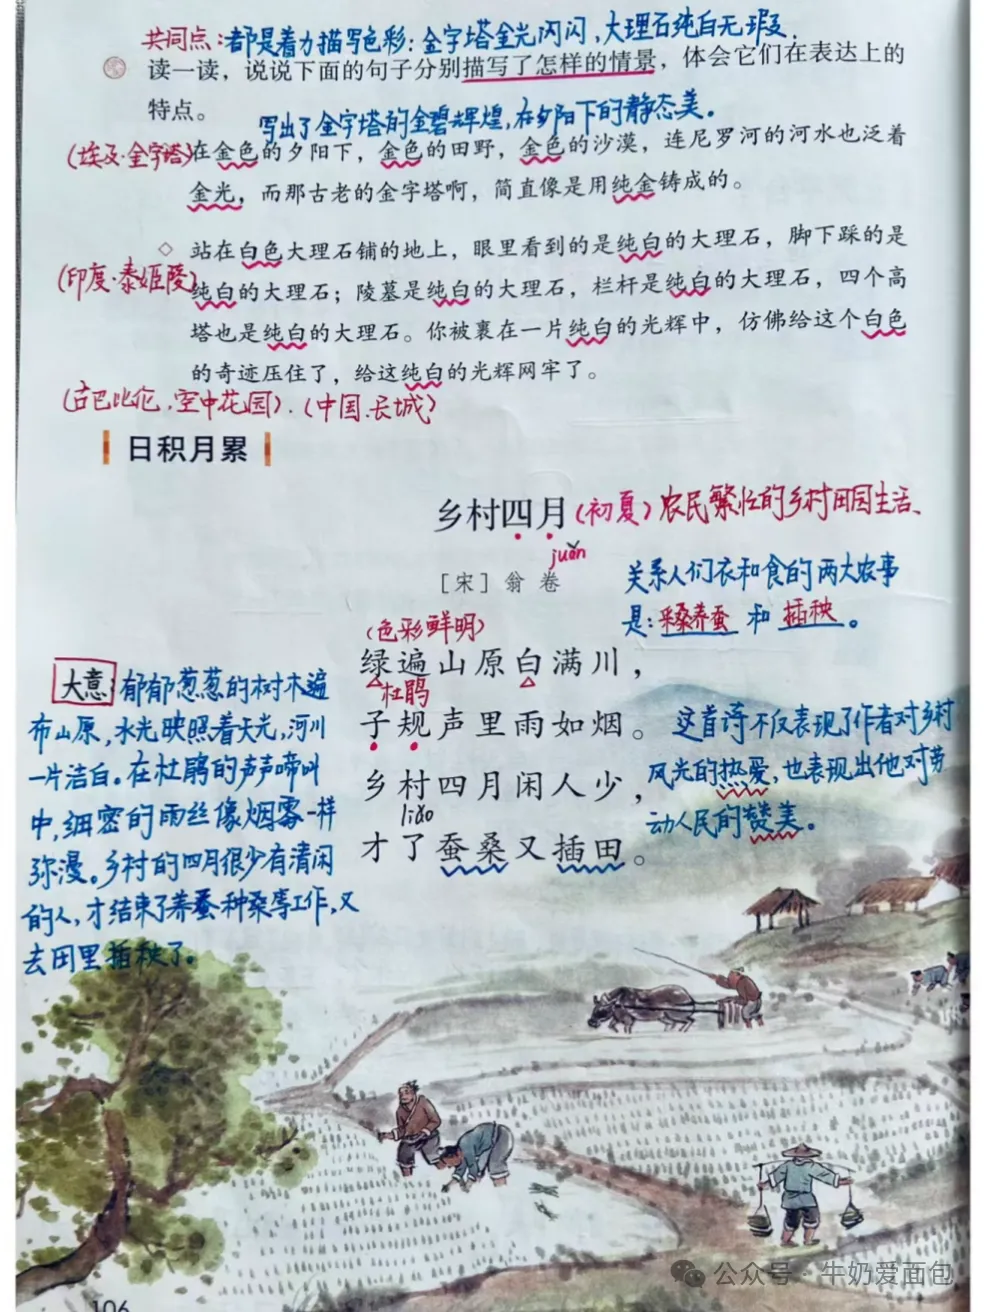 共同点:都是着力描写色彩:金字塔金光闪闪,大理石纯白无瑕.
读一读，说说下面的句子分别描写了怎样的情景，体会它们在表达上的
特点。
写出了金字塔的金碧辉煌,在夕阳下的静态美。
(埃及·金字塔)
在金色的夕阳下，金色的田野，金色的沙漠，连尼罗河的河水也泛着
金光，而那古老的金字塔啊，简直像是用纯金铸成的。
◇ 站在白色大理石铺的地上，眼里看到的是纯白的大理石，脚下踩的是
(印度·泰姬陵)
纯白的大理石；陵墓是纯白的大理石，栏杆是纯白的大理石，四个高
塔也是纯白的大理石。你被裹在一片纯白的光辉中，仿佛给这个白色
的奇迹压住了，给这纯白的光辉网牢了。
(古巴比伦.空中花园).(中国.长城)
日积月累
乡村四月(初夏)农民繁忙的乡村田园生活、
juàn
[宋]翁 卷
关系人们衣和食的两大农事
是:采桑养蚕 和 插秧。
(色彩鲜明)
绿遍山原白满川，
杜鹃
子规声里雨如烟。
乡村四月闲人少，
liǎo
才了蚕桑又插田。
大意:郁郁葱葱的树木遍
布山原,水光映照着天光,河川
一片洁白。在杜鹃的声声啼叫
中,细密的雨丝像烟雾一样
弥漫。乡村的四月很少有清闲
的人,才结束了养蚕种桑等工作,又
去田里插秧了。
这首诗不仅表现了作者对乡村
风光的热爱,也表现出他对劳
动人民的赞美。
公众号·牛奶爱面包
106